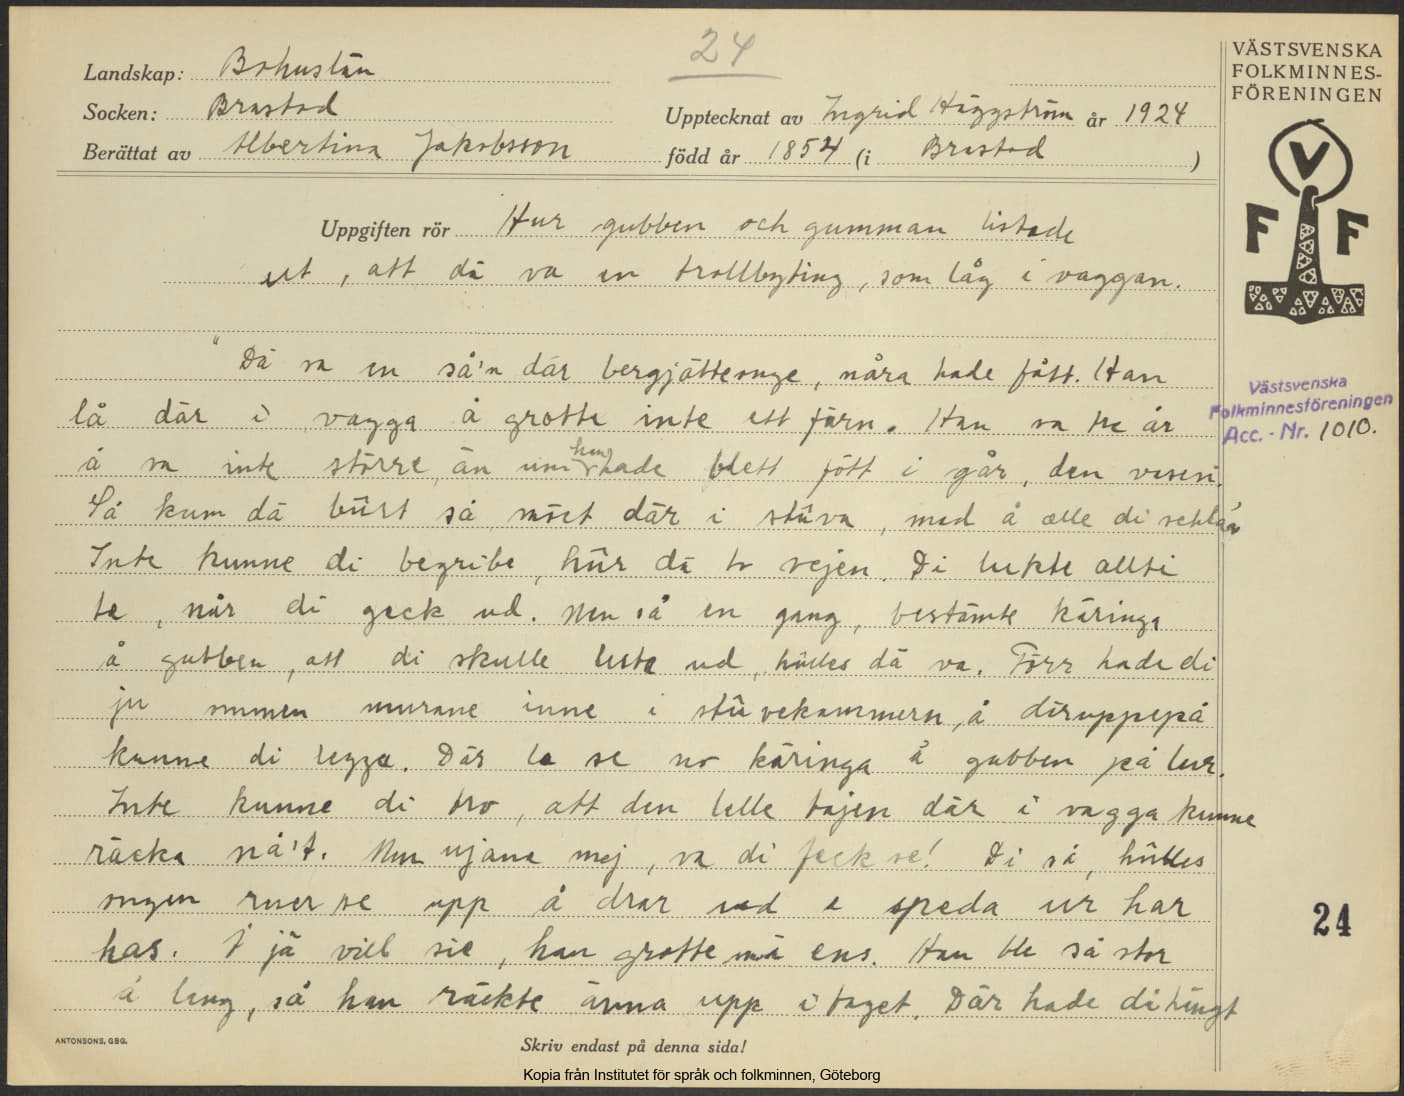 24
VÄSTSVENSKA
FOLKMINNES-
FÖRENINGEN
Landskap: Bohuslän
Socken: Brastad
Upptecknat av Ingrid Häggström år 1924
Berättat av Albertina Jakobsson född år 1854 (i Brastad)
V
F F
Uppgiften rör Hur gubben och gumman listade
ut, att dä va en trollbyting, som låg i vaggan.
"Dä va en så'n där bergjätteonge, nåra hade fått. Han
lå där i vagga å grotte inte ett järn. Han va tre år
å va inte större, än um han hade blett fött i går, den
Så kum dä bûrt så möet där i stûva, mad å alle di
Inte kunne di begribe, hûr dä to vejen. Di lukte allti
te, når di geck ud. Men så en gang, bestämte käringa
å gubben, att di skulle lista ud, hûlles dä va. Förr hade di
ju murane inne i stûvekammern, å däruppepå
kunne di legga. Där la se no käringa å gubben på lur.
Inte kunne di tro, att den lelle tajen där i vagga kunne
räcka nå't. Men ujana mej, va di feck se! Di så, hûlles
ongen ruer se upp å drar ud e speda ur har
has. Å jä vill sie, han grotte mä ens. Han ble så stor
å lang, så han räckte änna upp i taget. Där hade di hängt
Västsvenska
Folkminnesföreningen
Acc.-Nr. 1010.
24
ANTONSONS, GBG.
Skriv endast på denna sida!
Kopia från Institutet för språk och folkminnen, Göteborg